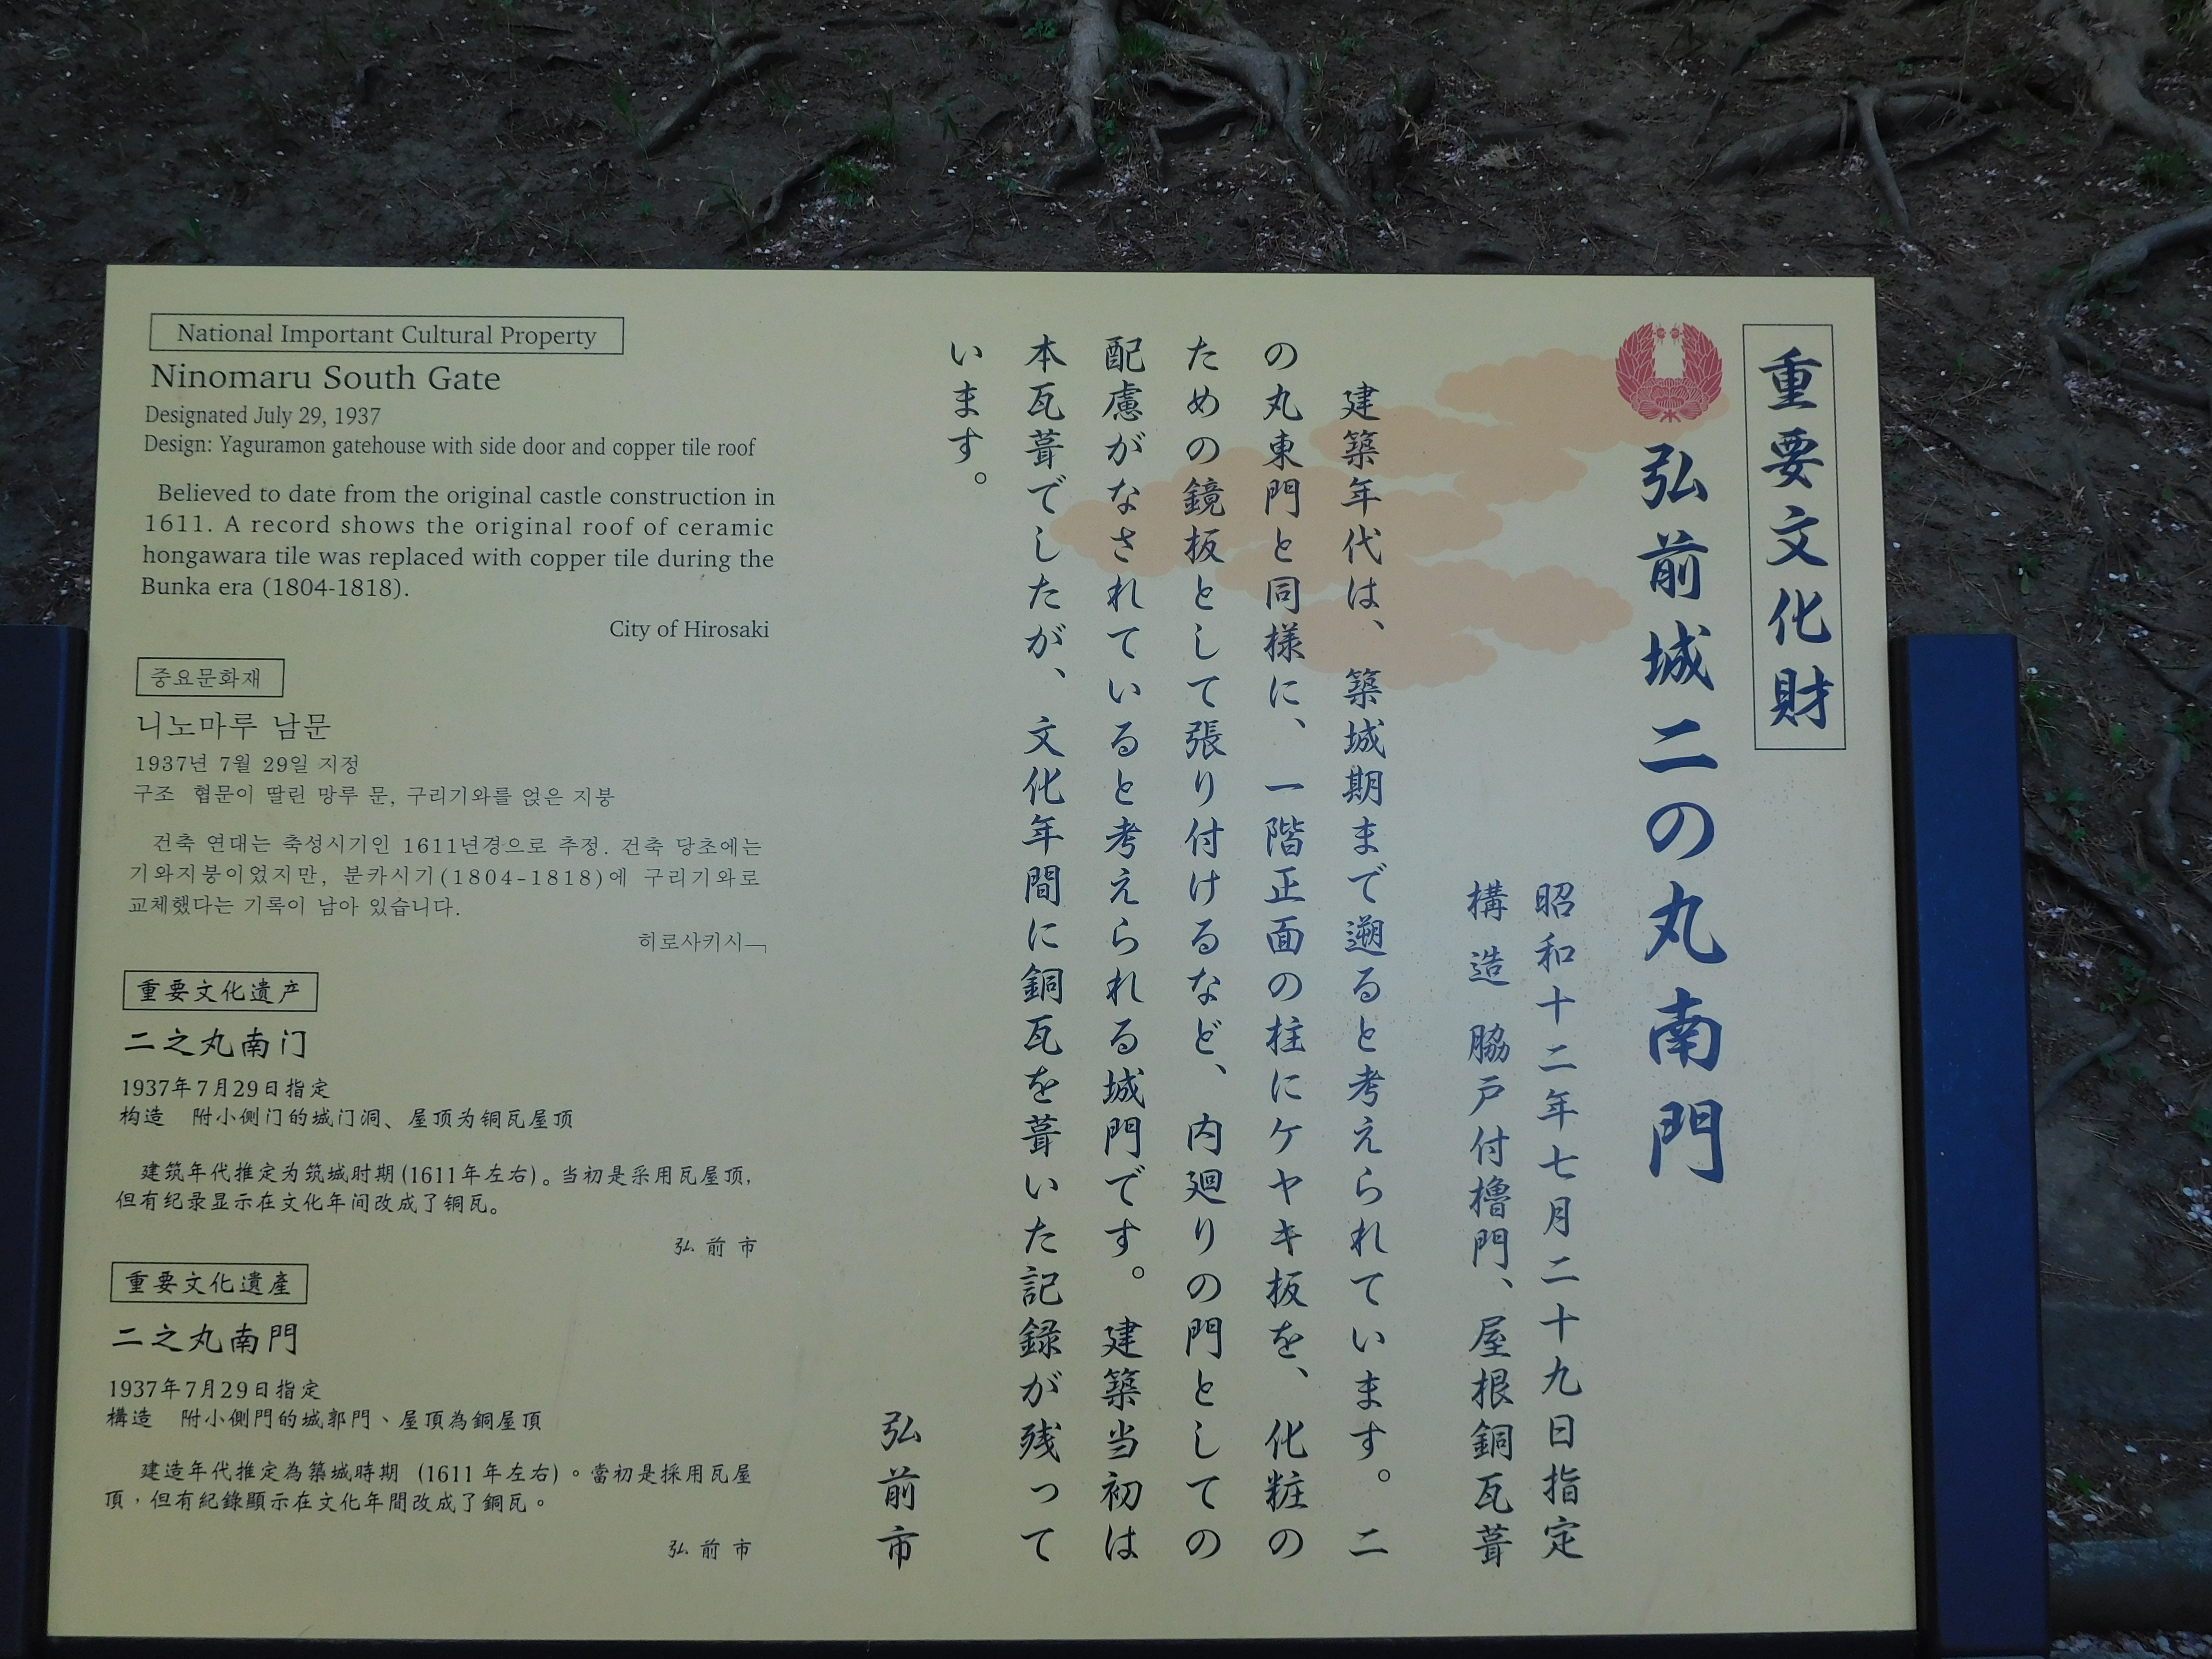 重要文化財
弘前城二の丸南門
昭和十二年七月二十九日指定
構造 脇戸付櫓門、屋根銅瓦葺
建築年代は、築城期まで遡ると考えられています。二
の丸東門と同様に、一階正面の柱にケヤキ板を、化粧の
ための鏡板として張り付けるなど、内廻りの門としての
配慮がなされていると考えられる城門です。建築当初は
本瓦葺でしたが、文化年間に銅瓦を葺いた記録が残って
います。
弘前市
National Important Cultural Property
Ninomaru South Gate
Designated July 29, 1937
Design: Yaguramon gatehouse with side door and copper tile roof
Believed to date from the original castle construction in
1611. A record shows the original roof of ceramic
hongawara tile was replaced with copper tile during the
Bunka era (1804-1818).
City of Hirosaki
중요문화재
니노마루 남문
1937년 7월 29일 지정
구조 협문이 딸린 망루 문, 구리기와를 얹은 지붕
건축 연대는 축성시기인 1611년경으로 추정. 건축 당초에는
기와지붕이었지만, 분카시기(1804-1818)에 구리기와로
교체했다는 기록이 남아 있습니다.
히로사키시ㅡㄱ
重要文化遺产
二之丸南门
1937年7月29日指定
构造 附小側门的城门洞、屋顶为铜瓦屋顶
建筑年代推定为筑城时期(1611年左右)。当初是采用瓦屋顶,
但有纪录显示在文化年间改成了铜瓦。
弘前市
重要文化遺產
二之丸南門
1937年7月29日指定
構造 附小側門的城郭門、屋頂為銅屋頂
建造年代推定為築城時期 (1611年左右)。當初是採用瓦屋
頂,但有紀錄顯示在文化年間改成了銅瓦。
弘前市